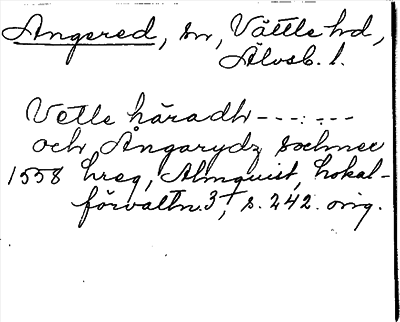 Angered, sn, Vättle hd,
Älvsb. l.
Vetle häradh ---:---
och Ångarydz sochnee
1558 hreg, Almquist, Lokal-
förvaltn. 3†, s. 242. orig.